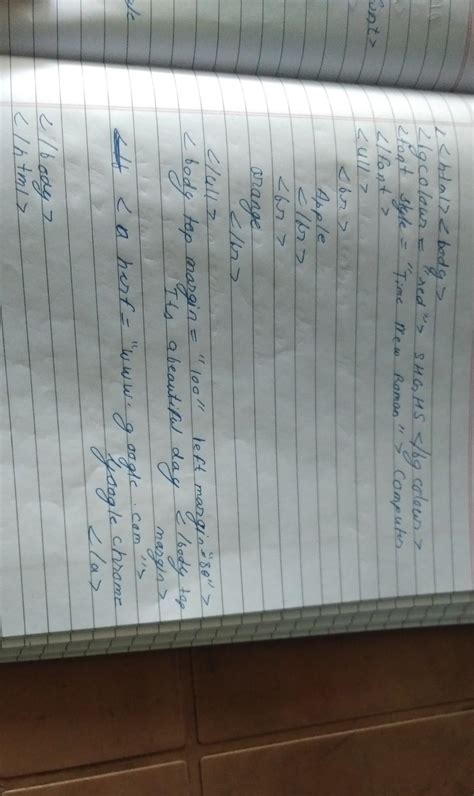 font>
<html><body>
<bgcolour = "red"> SHG,HS </bg colour>
<font style = "Time New Roman"> Computer
</font>
<ull>
<br>
Apple
</br>
<br>
orange
</br>
</ull>
<body tap margin = "100" left margin="80">
Its a beautiful day </body tap
margin>
<a herf = "www.google.com">
google chrome
</a>
</body>
</html>